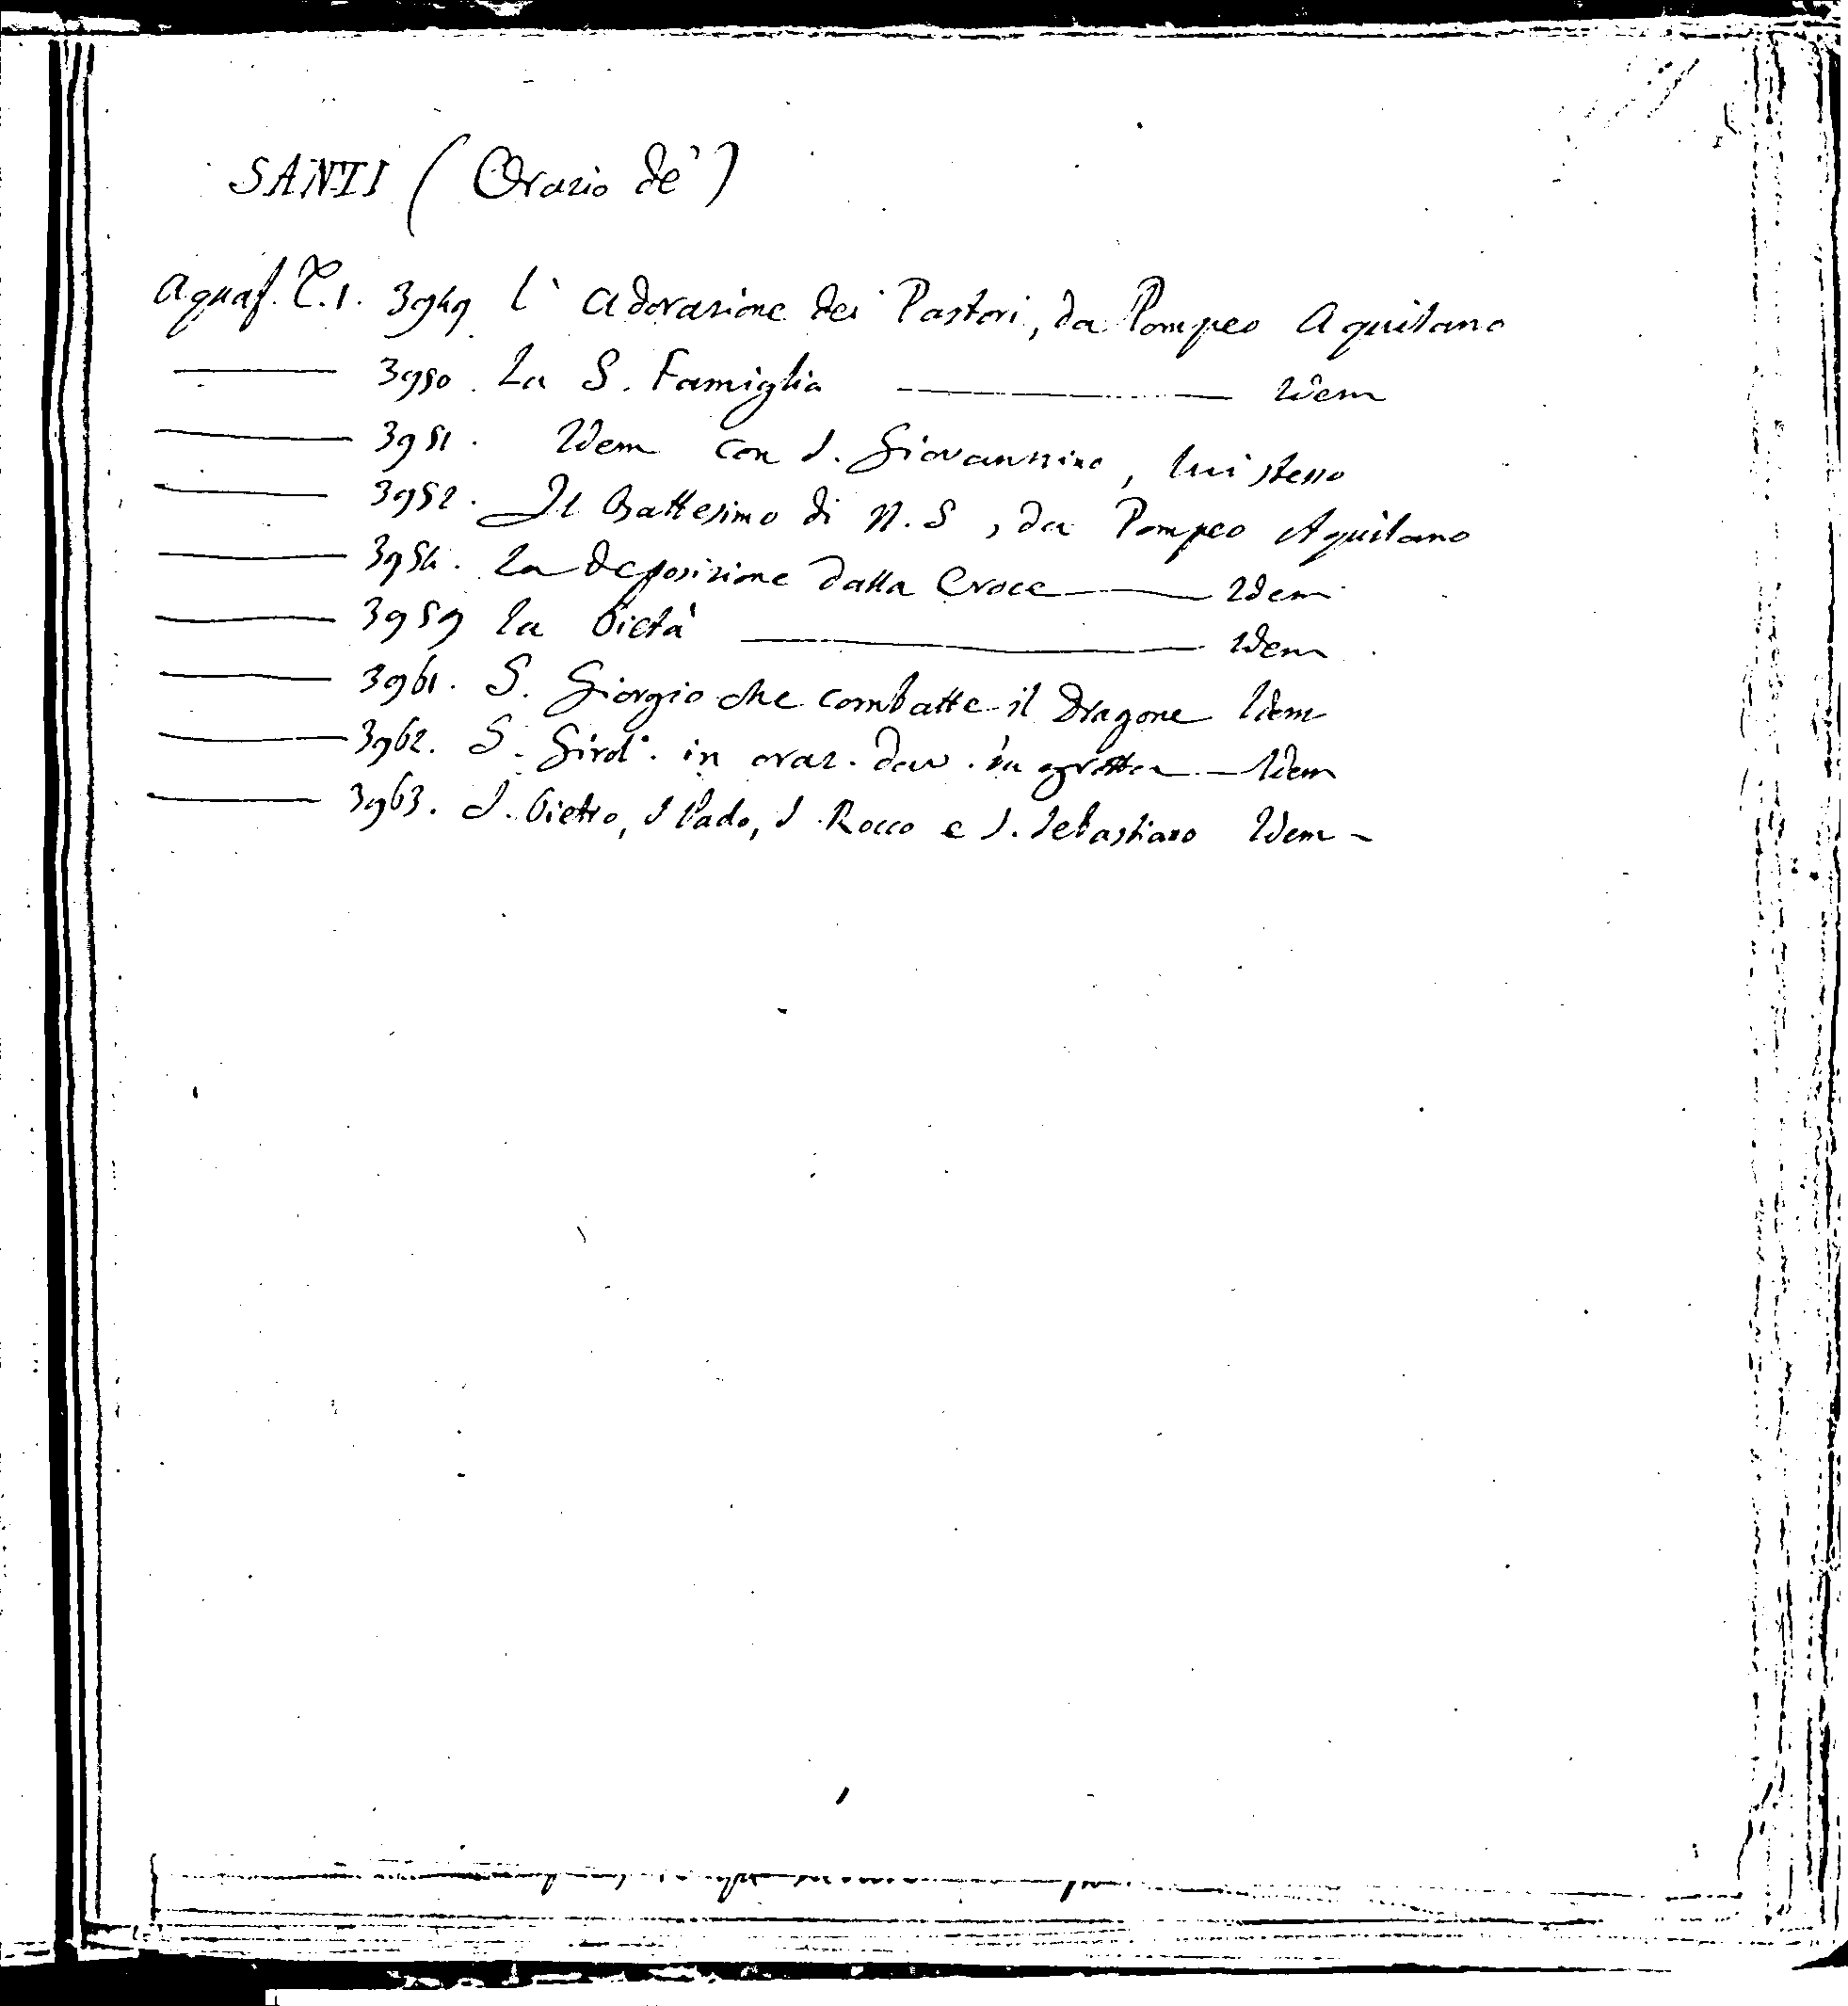 SANTI (Orazio de')
Aquaf. T.1. 3949 L'Adorazione dei Pastori, da Pompeo Aquilano
——— 3950. La S. Famiglia ——— Idem
——— 3951. Idem con S. Giovannino, lui stesso
——— 3952. Il Battesimo di N.S, da Pompeo Aquilano
——— 3954. La deposizione dalla Croce ——— Idem
——— 3959 La Pietà ——— Idem
——— 3961. S. Giorgio che combatte il Dragone Idem
——— 3962. S. Girol.° in oraz. dav. in grotta — Idem
——— 3963. S. Pietro, S Paolo, S Rocco e S. Sebastiano Idem -